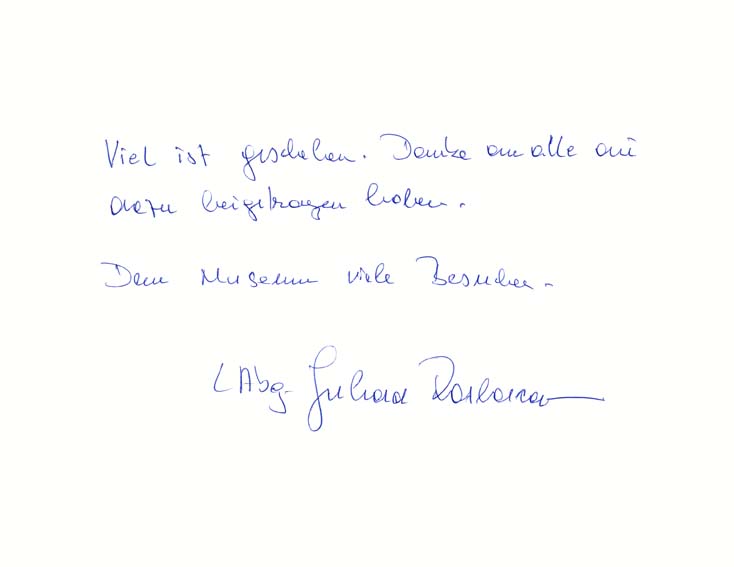 Viel ist geschehen. Danke an alle die
dazu beigetragen haben.
Dem Museum viele Besucher.
LAbg. Barbara